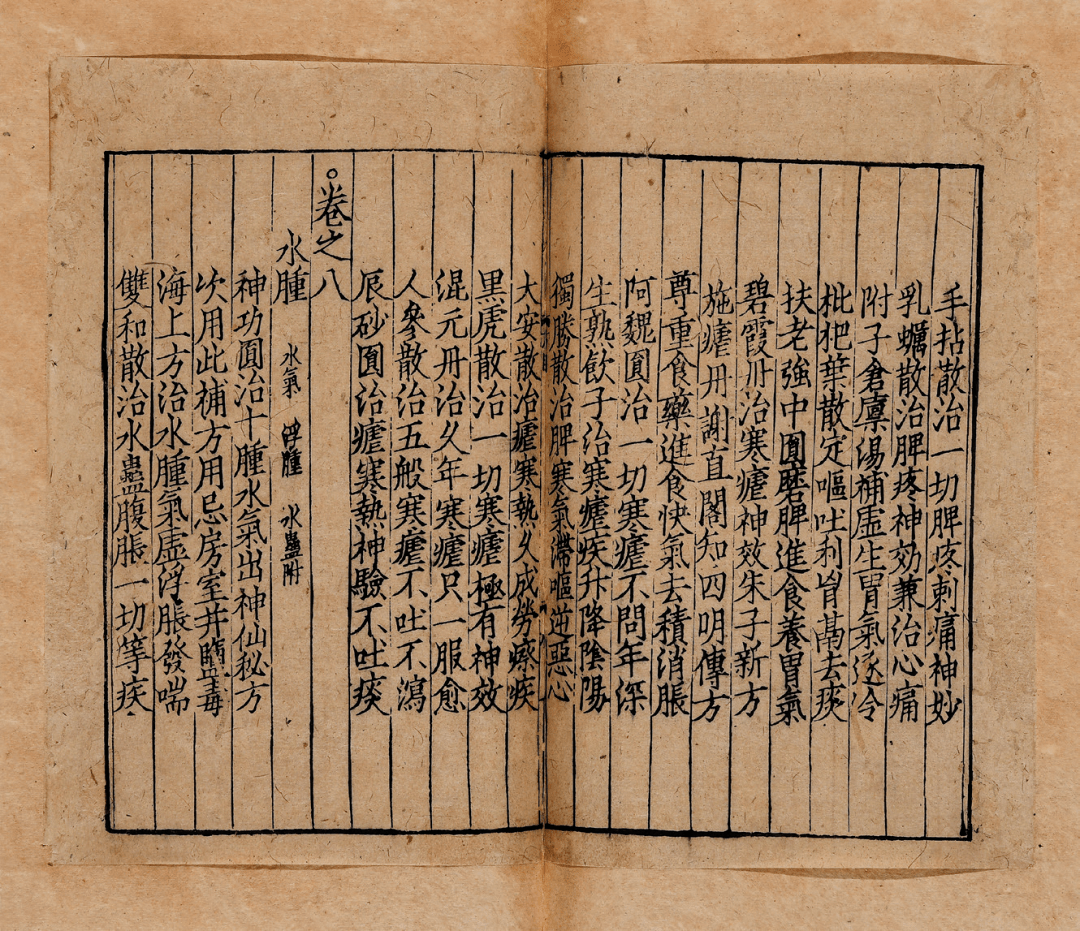 手拈散治一切脾疼刺痛神妙
乳蠣散治脾疼神効兼治心痛
附子倉廩湯補虛生胃氣逐冷
枇杷葉散定嘔吐利胷膈去痰
扶老強中圓磨脾進食養胃氣
碧霞丹治寒瘧神效朱子新方
施瘧丹謝直閣知四明傳方
尊重食藥進食快氣去積消脹
阿魏圓治一切寒瘧不問年深
生熟飲子治寒瘧疾升降陰陽
獨勝散治脾寒氣滯嘔逆惡心
大安散治瘧寒熱久成勞瘵疾
黑虎散治一切寒瘧極有神效
混元丹治久年寒瘧只一服愈
人參散治五般寒瘧不吐不瀉
辰砂圓治瘧寒熱神驗不吐痰
。卷之八
水腫 水氣 浮腫 水蠱附
神功圓治十腫水氣出神仙秘方
次用此補方用忌房室并鹽毒
海上方治水腫氣虛浮脹發喘
雙和散治水蠱腹脹一切等疾